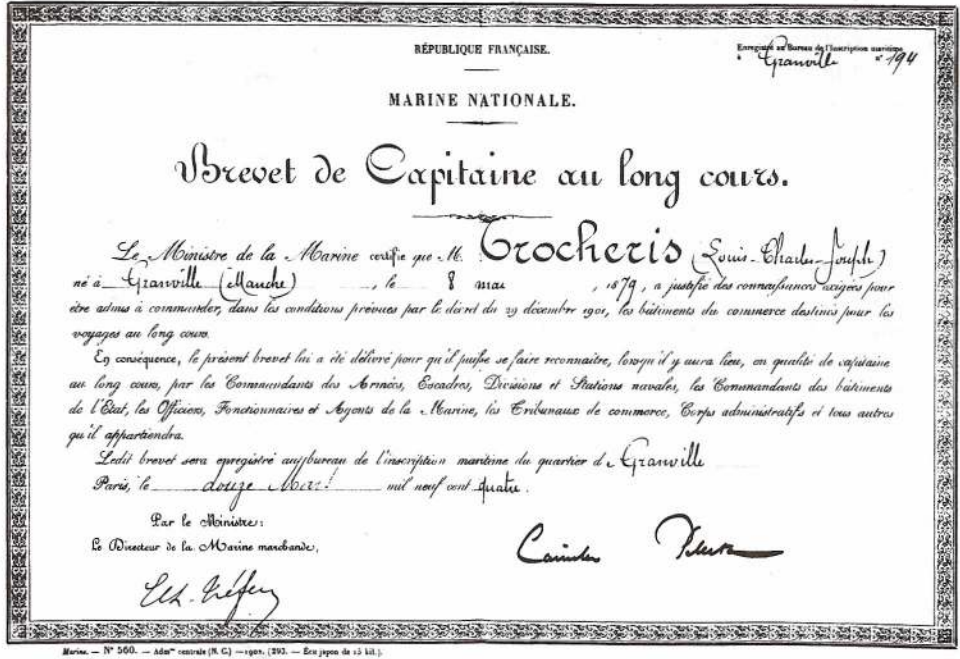 RÉPUBLIQUE FRANÇAISE.
Enregistré au Bureau de l'Inscription maritime
à Granville n° 194
MARINE NATIONALE.
Brevet de Capitaine au long cours.
Le Ministre de la Marine certifie que M. Trocheris (Louis-Charles-Joseph)
né à Granville (Manche), le 8 mai, 1879, a justifié des connaissances exigées pour
être admis à commander, dans les conditions prévues par le décret du 29 décembre 1901, les bâtiments du commerce destinés pour les
voyages au long cours.
En conséquence, le présent brevet lui a été délivré pour qu'il puisse se faire reconnaître, lorsqu'il y aura lieu, en qualité de capitaine
au long cours, par les Commandants des Armées, Escadres, Divisions et Stations navales, les Commandants des bâtiments
de l'État, les Officiers, Fonctionnaires et Agents de la Marine, les Tribunaux de commerce, Corps administratifs et tous autres
qu'il appartiendra.
Ledit brevet sera enregistré au bureau de l'inscription maritime du quartier de Granville
Paris, le douze Mars mil neuf cent quatre.
Par le Ministre:
Le Directeur de la Marine marchande,
Camille Pelletan
Marine. — N° 560. — Adm^on centrale (N. C.) — 1902. (293. — Écu japon de 15 kil.).